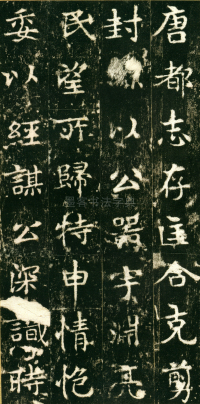 唐都志存匡合克剪
封以公器宇淵亮
民望所歸特申情
委以經謀公深識時